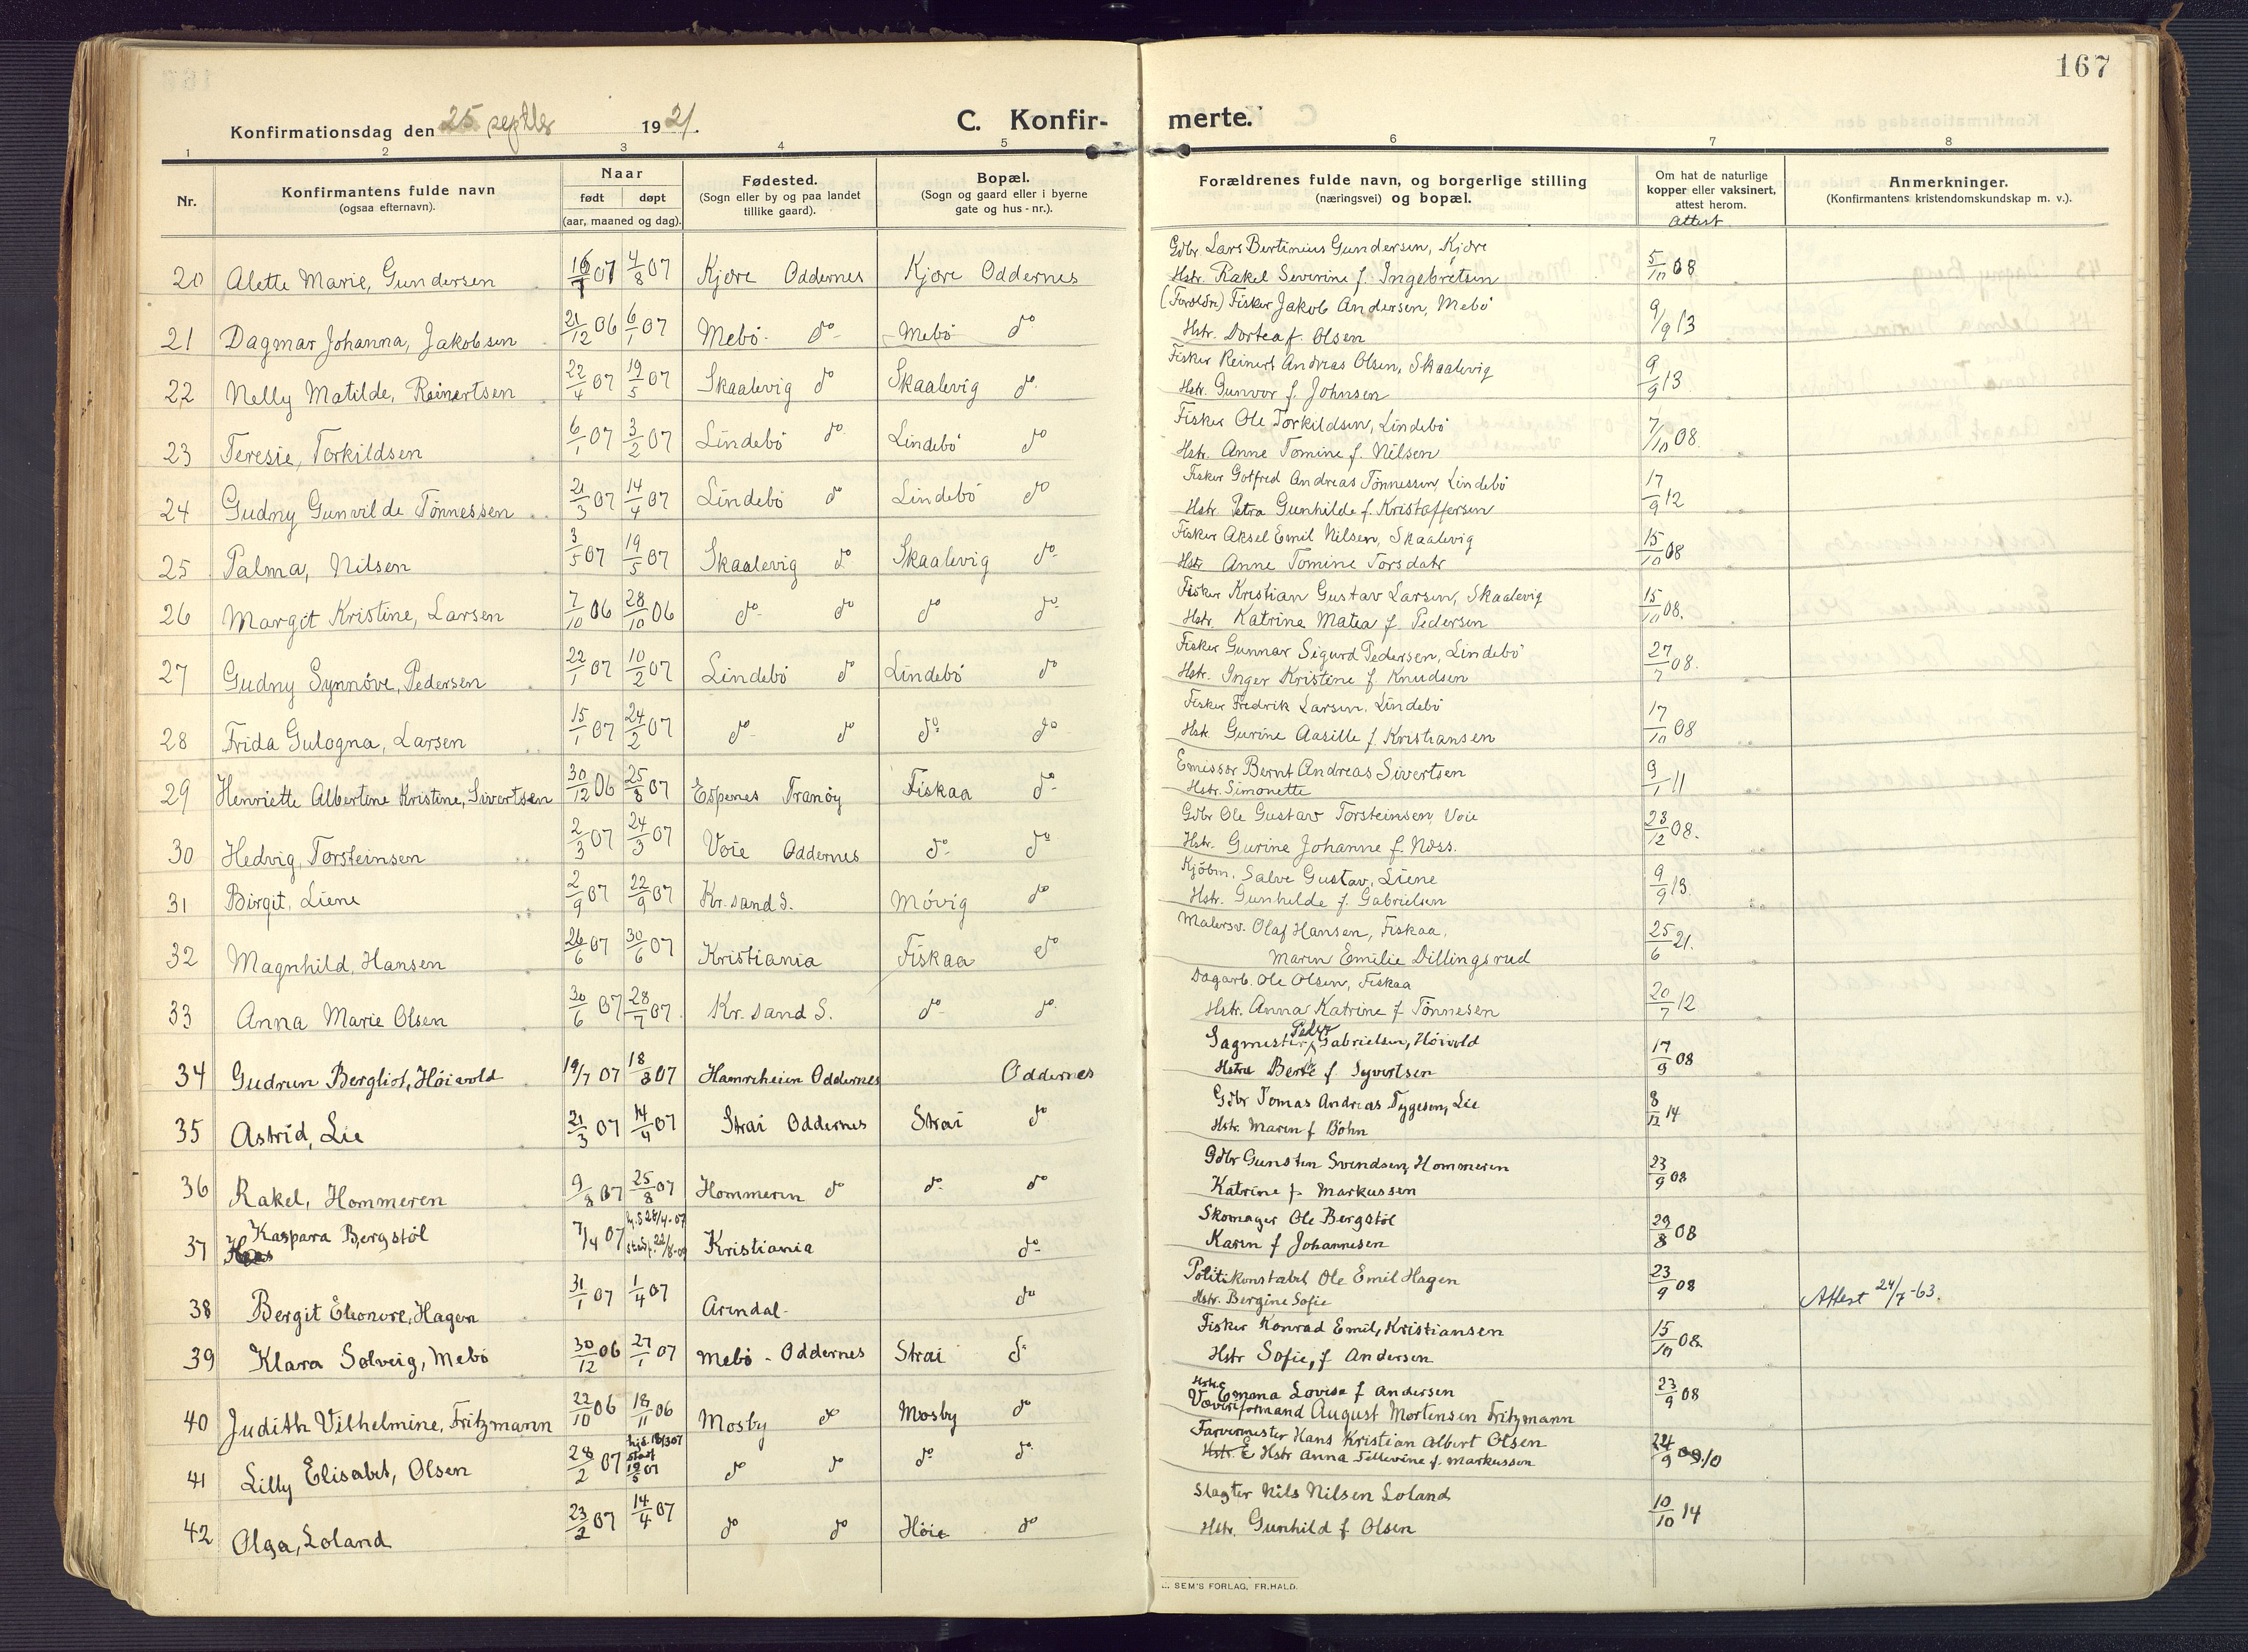 167
Konfirmationsdag den 25 septbr 1921.
C. Konfir- merte.
1 2 3 4 5 6 7 8
Nr.
Konfirmantens fulde navn
(ogsaa efternavn).
Naar
født døpt
(aar, maaned og dag).
Fødested.
(Sogn eller by og paa landet
tillike gaard).
Bopæl.
(Sogn og gaard eller i byerne
gate og hus-nr.).
Forældrenes fulde navn, og borgerlige stilling
(næringsvei) og bopæl.
Om hat de naturlige
kopper eller vaksinert,
attest herom.
Attest
Anmerkninger.
(Konfirmantens kristendomskundskap m. v.).
Gdbr. Lars Bertinius Gundersen, Kjære
20 Alette Marie, Gundersen 16/7 07 4/8 07 Kjære Oddernes Kjære Oddernes Hstr. Rakel Severine f. Ingebretsen 5/10 08
(Forældre) Fisker Jakob Andersen, Mebö
21 Dagmar Johanna, Jakobsen 21/12 06 6/1 07 Mebö do Mebö do Hstr. Dortea f. Olsen 9/9 13
Fisker Reinert Andreas Olsen, Skaalevig
22 Nelly Matilde, Reinertsen 22/4 07 19/5 07 Skaalevig do Skaalevig do Hstr. Gunvor f. Johnsen 9/9 13
Fisker Ole Torkildsen, Lindebö
23 Teresie, Torkildsen 6/1 07 3/2 07 Lindebö do Lindebö do Hstr. Anne Tomine f. Nilsen 7/10 08.
Fisker Gotfred Andreas Tönnessen, Lindebö
24 Gudny Gunvilde Tönnessen 21/3 07 14/4 07 Lindebö do Lindebö do Hstr. Petra Gunhilde f. Kristoffersen 17/9 12
Fisker Aksel Emil Nilsen, Skaalevig
25 Palma, Nilsen 3/5 07 19/5 07 Skaalevig do Skaalevig do Hstr Anne Tomine Torsdatr 15/10 08
Fisker Kristian Gustav Larsen, Skaalevig
26 Margit Kristine, Larsen 7/10 06 28/10 06 do do do do Hstr. Katrine Matea f. Pedersen 15/10 08.
Fisker Gunnar Sigurd Pedersen, Lindebö
27 Gudny Synnöve, Pedersen 22/1 07 10/2 07 Lindebö do Lindebö do Hstr. Inger Kristine f. Knudsen 27/7 08.
Fisker Fredrik Larsen, Lindebö
28 Frida Gulogna, Larsen 15/1 07 24/2 07 do do do do Hstr. Gurine Aasille f. Kristiansen 17/10 08
Emissær Bernt Andreas Sivertsen
29 Henriette Albertine Kristine, Sivertsen 30/12 06 25/8 07 Espenes Tranöy Fiskaa do Hstr. Simonette 9/1 11
Gdbr Ole Gustav Torsteinsen, Voie
30 Hedvig, Torsteinsen 2/3 07 24/3 07 Voie Oddernes do do Hstr. Gurine Johanne f. Næss. 23/12 08.
Kjöbm. Salve Gustav, Liene
31 Birgit, Liene 2/9 07 22/9 07 Kr.sand S. Mövig do Hstr. Gunhilde f. Gabrielsen 9/9 13.
Malersv. Olaf Hansen, Fiskaa,
32 Magnhild, Hansen 26/6 07 30/6 07 Kristiania Fiskaa do Maren Emilie Dillingsrud 25/6 21.
Dagarb. Ole Olsen, Fiskaa
33 Anna Marie Olsen 30/6 07 28/7 07 Kr. sand S. do do Hstr. Anna Katrine f Tönnesen 20/7 12
Sagmester Peder Gabrielsen, Höivold
34 Gudrun Bergliot, Höivold 19/7 07 18/8 07 Hamreheien Oddernes Oddernes Hstru Berte f Syvertsen 17/9 08
Gdbr Tomas Andreas Tygesen, Lie
35 Astrid, Lie 21/3 07 14/4 07 Strai Oddernes Strai do Hstr. Maren f Böhn 8/12 14
Gdbr Gunsten Svendsen, Hommeren
36 Rakel, Hommeren 9/8 07 25/8 07 Hommeren do do do Katrine f Markussen 23/9 08
Skomager Ole Bergstöl
37 Kaspara Bergstöl 7/4 07 hj.d 28/4-07 stadf. 22/8-09 Kristiania do Karen f Johannesen 29/8 08
Politikonstabel Ole Emil Hagen
38 Bergit Eleonore, Hagen 31/1 07 1/4 07 Arendal- do Hstr. Bergine Sofie 23/9 08 Attest 24/7-63.
Fisker Konrad Emil, Kristiansen
39 Klara Solveig, Mebö 30/12 06 27/1 07 Mebö - Oddernes Strai do Hstr Sofie, f Andersen 15/10 08
Hstr. Emma Lovise f Andersen
40 Judith Vilhelmine, Fritzmann 22/10 06 18/11 06 Mosby do Mosby do Væveriformand August Mortensen Fritzmann 23/9 08
Farvermester Hans Kristian Albert Olsen
41 Lilly Elisabet, Olsen 28/2 07 hjd. 18/3 07 stadf 19/5 07 do do do do Hstr. E Hstr Anna Tellevine f. Markussen 24/9 09/10
Slagter Nils Nilsen Loland
42 Olga, Loland 23/2 07 14/4 07 do do Höie do Hstr. Gunhild f Olsen 10/10 14
SEM'S FORLAG, FR.HALD.